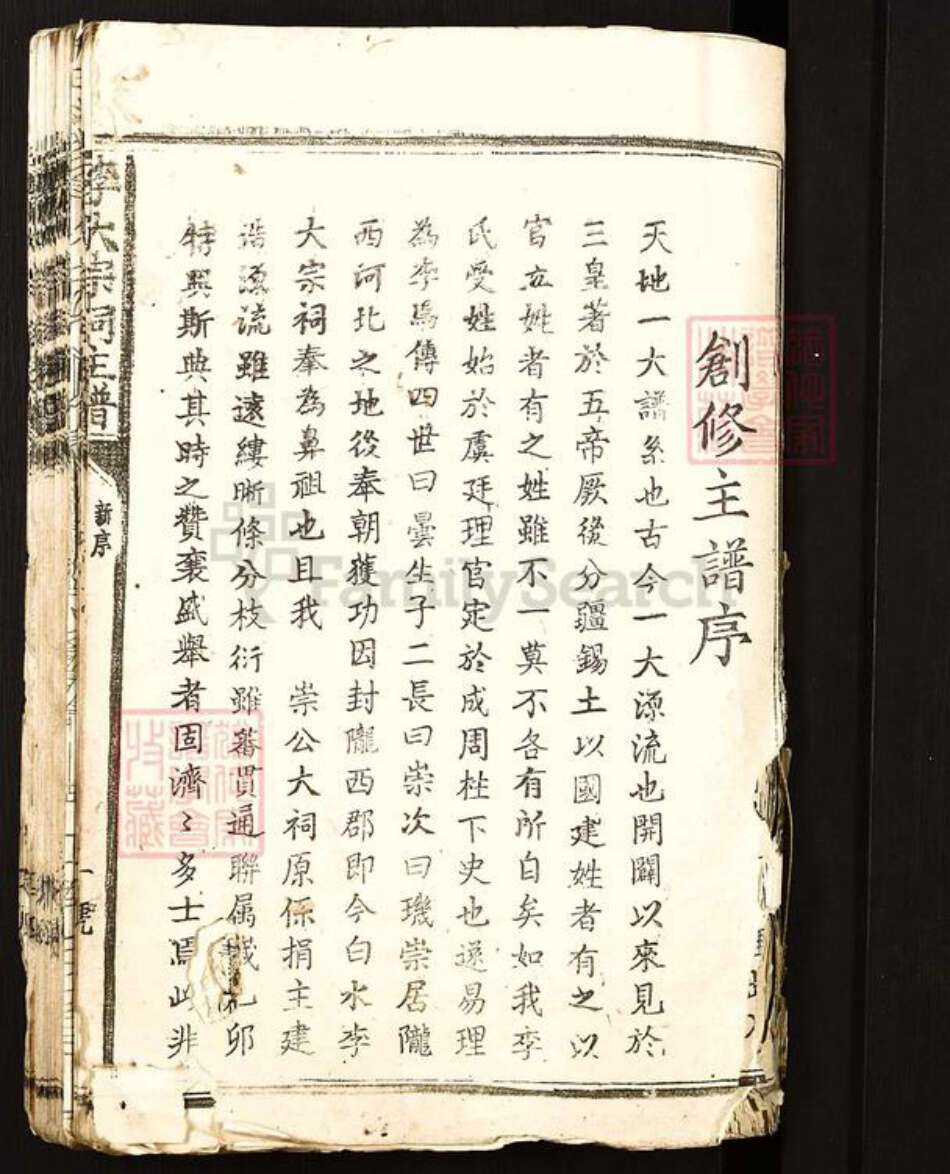 創修主譜序
天地一大譜系也古今一大源流也開闢以來見於
三皇著於五帝厥後分疆錫土以國建姓者有之以
官立姓者有之姓雖不一莫不各有所自矣如我李
氏受姓始於虞廷理官定於成周柱下史也遂易理
為李焉傳四世曰曇生子二長曰崇次曰璣崇居隴
西河北之地後奉朝獲功因封隴西郡即今白水李
大宗祠奉為鼻祖也且我 崇公大祠原係捐主建
源流雖遠縷晰條分枝衍雖蕃貫通聯属 卯
特興斯典其時之贊襄盛舉者固濟〻多士焉此非
李大宗祠主譜
新序
一號
FamilySearch